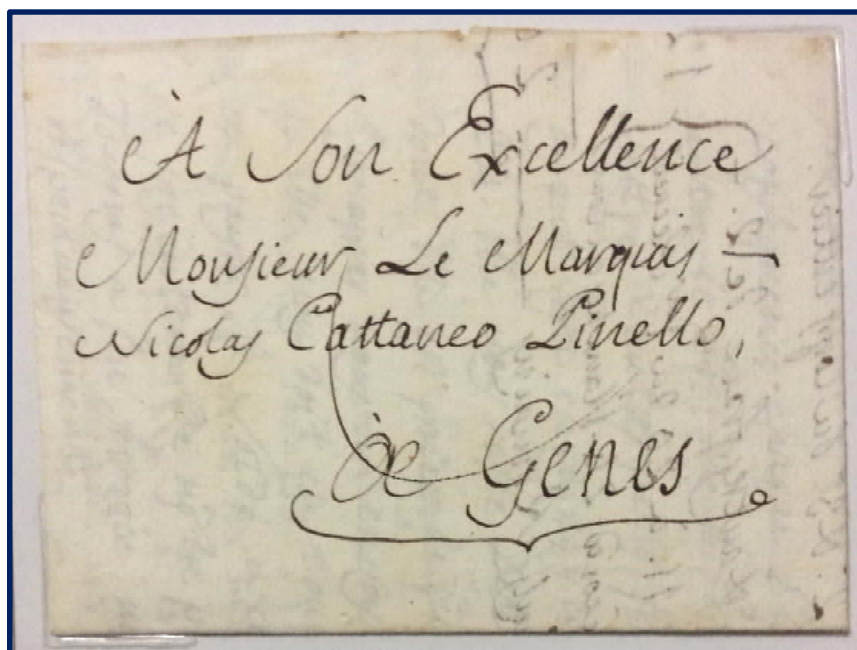 À Son Excellence
Monsieur Le Marquis –
Nicolas Cattaneo Pinello,
à Genes